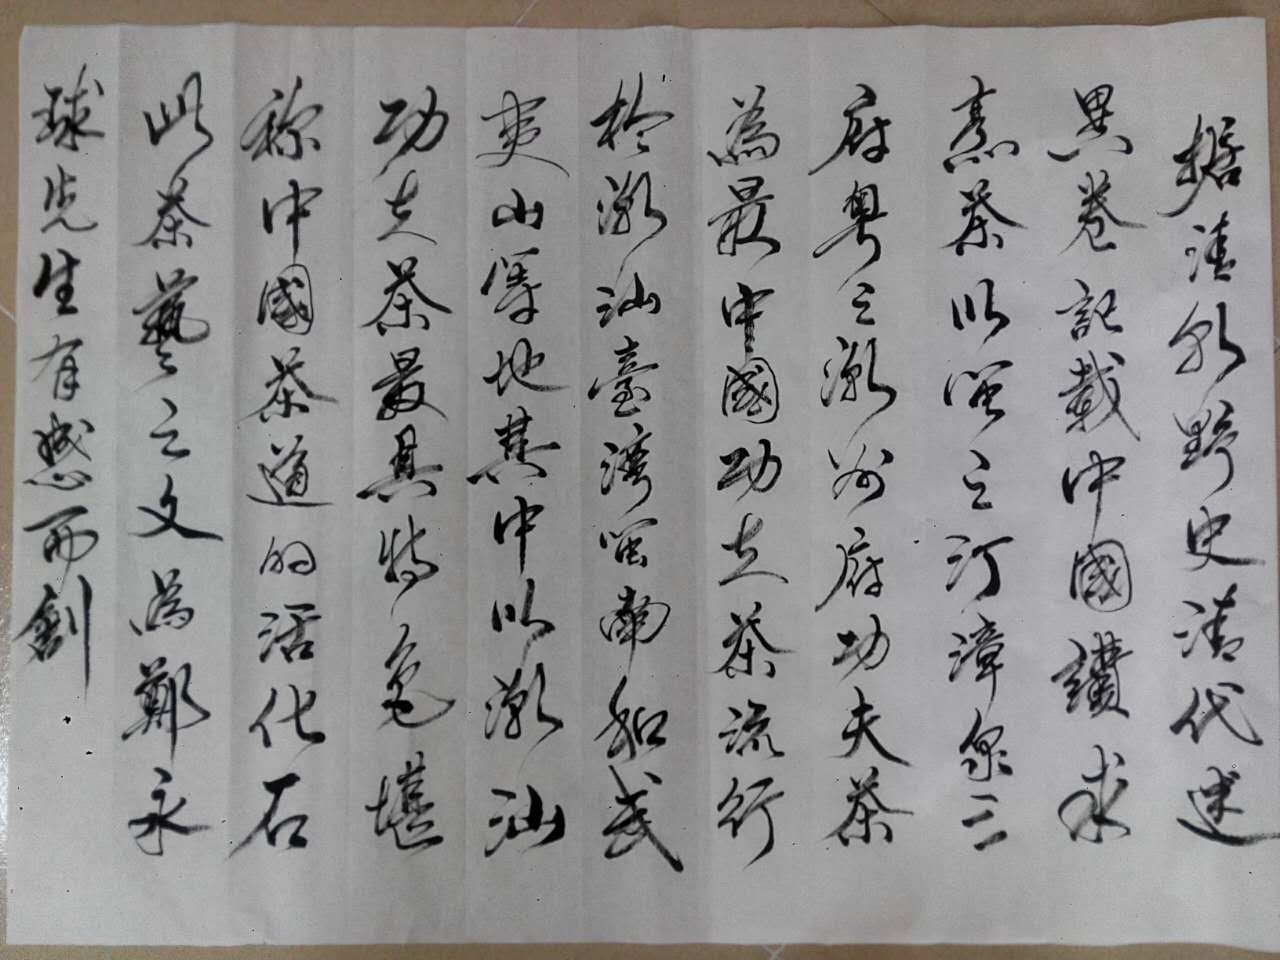 據清朝野史清代述
異卷記載中國講求
烹茶以閩之汀漳泉三
府粵之潮州府功夫茶
為最中國功夫茶流行
於潮汕臺灣閩南和武
夷山等地其中以潮汕
功夫茶最具特色堪
称中國茶道的活化石
此茶藝之文為鄭永
球先生有感而創